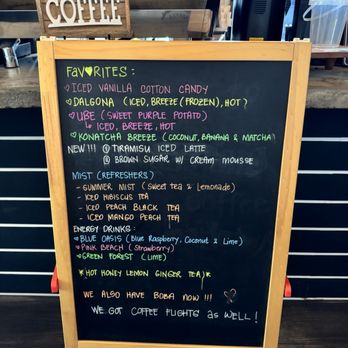 COFFEE
FAV♥RITES:
♡ICED VANILLA COTTON CANDY
♡DALGONA (ICED, BREEZE (FROZEN), HOT?
♡UBE (SWEET PURPLE POTATO)
↳ ICED, BREEZE, HOT
♡KONATCHA BREEZE (COCONUT, BANANA & MATCHA)
NEW!!! @ TIRAMISU ICED LATTE
@ BROWN SUGAR W/ CREAM MOUSSE
MIST (REFRESHERS)
- SUMMER MIST (Sweet tea & Lemonade)
- ICED HIBISCUS TEA
- ICED PEACH BLACK TEA
- ICED MANGO PEACH TEA
ENERGY DRINKS:
♥BLUE OASIS (Blue Raspberry, Coconut & Lime)
♥PINK BEACH (Strawberry)
♥GREEN FOREST (LIME)
*(HOT HONEY LEMON GINGER TEA)*
WE ALSO HAVE BOBA NOW!!!
WE GOT COFFEE FLIGHTS as WELL!